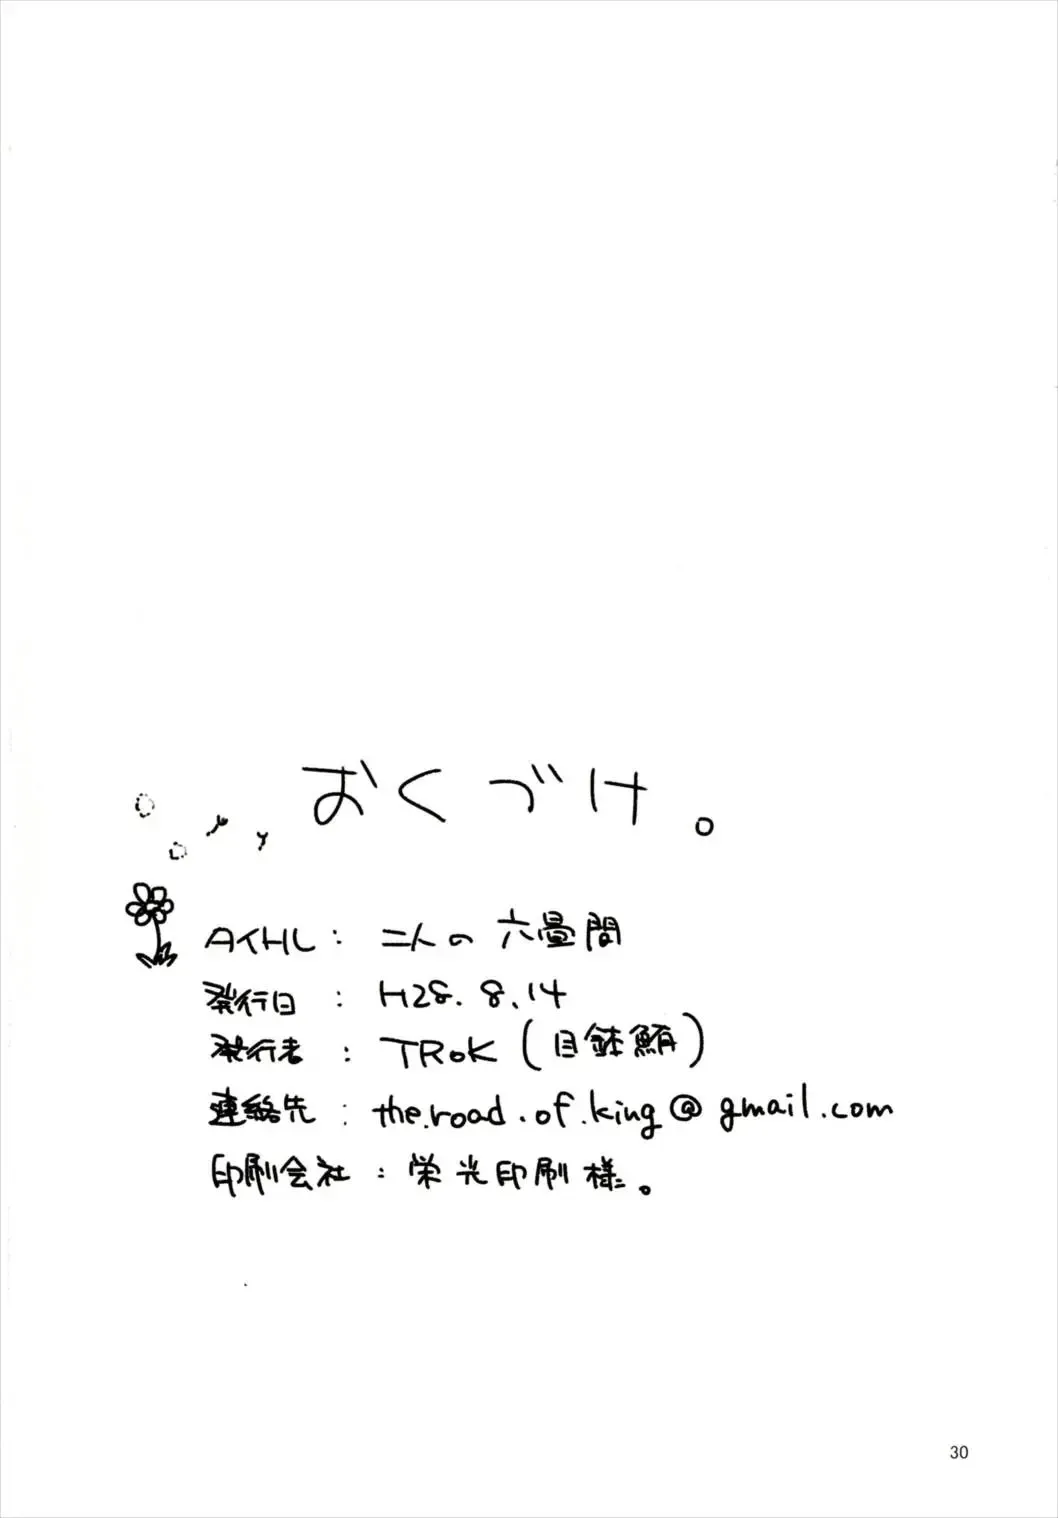 おくづけ。
タイトル: 二人の六畳間
発行日: H28.8.14
発行者: TRoK(目鉢鮪)
連絡先: the.road.of.king@gmail.com
印刷会社: 栄光印刷様。
30